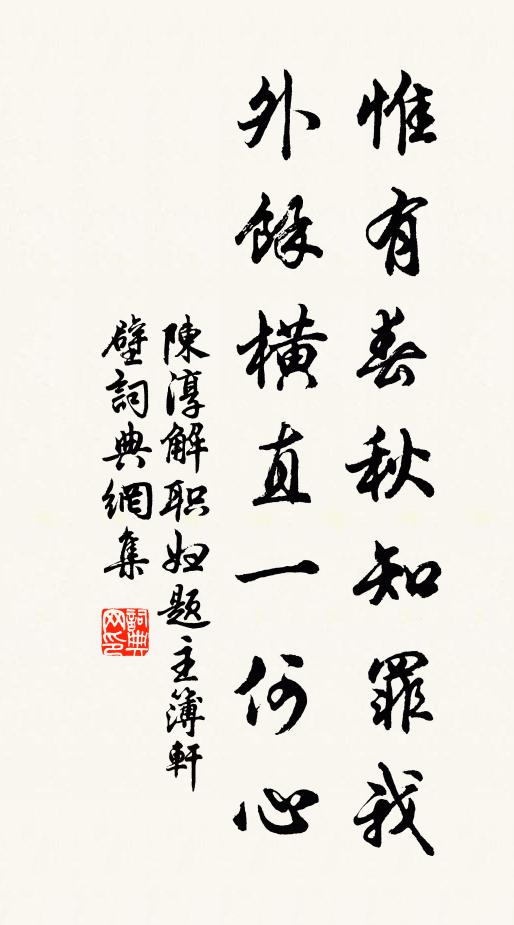 惟有春秋知罪我
外餘橫直一何心
陳淳解职归题主簿軒
壁詞典網集
詞典
网印